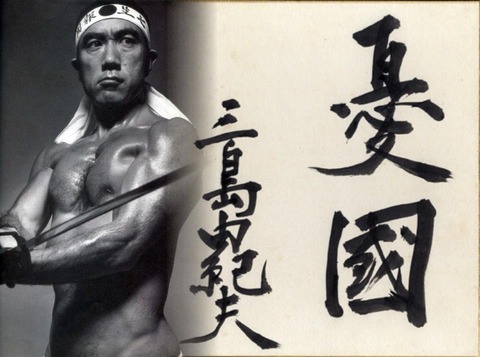 憂國
三島由紀夫
七生報國